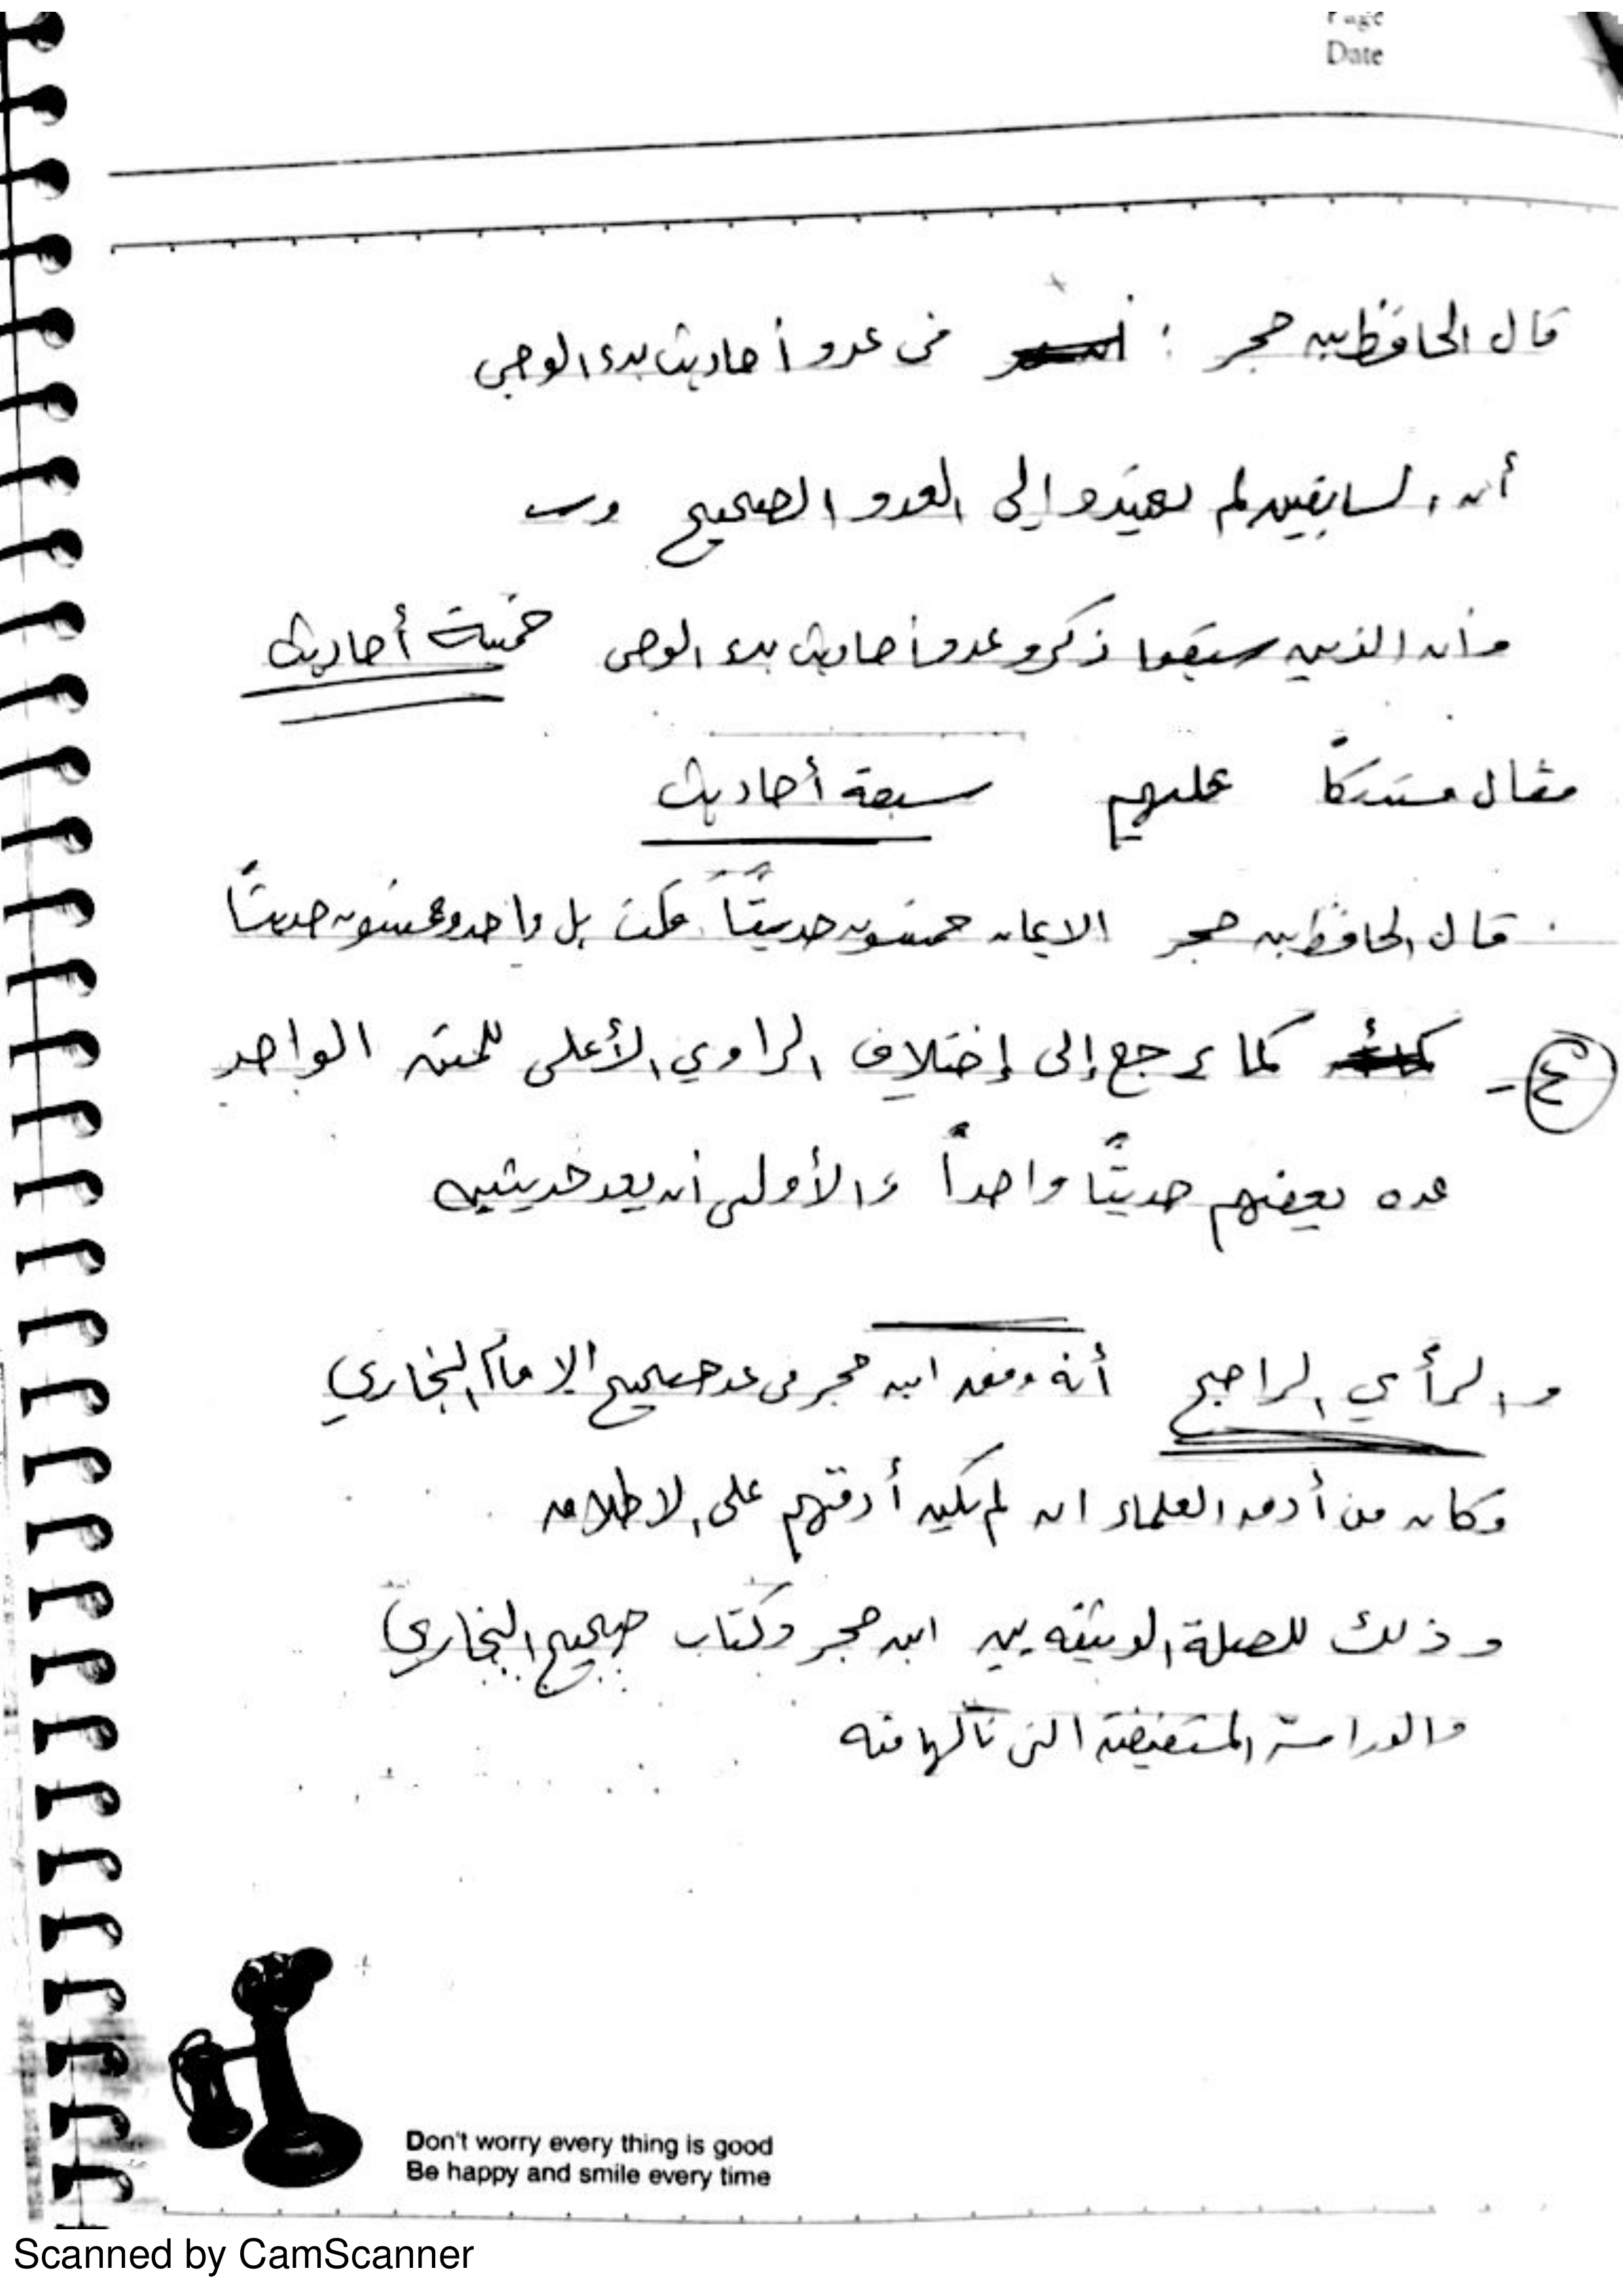 Page
Date
قال الحافظ بن حجر : في عدد أحاديث بدء الوحي
أن السابقين لم يهتدوا إلى العدد الصحيح
وأن الذين سبقوا ذكروا عدد أحاديث بدء الوحي خمسة أحاديث
فقال مستدركاً عليهم سبعة أحاديث
قال الحافظ بن حجر الايمان خمسون حديثاً قلت بل واحد وخمسون حديثاً
٤ - كما يرجع إلى إختلاف الراوي الأعلى للمتن الواحد
عده بعضهم حديثاً واحداً والأولى أن يعد حديثين
والرأي الراجح أنه وفق ابن حجر في عد صحيح الامام البخاري
وكان من أدق العلماء ان لم يكن أدقهم على الاطلاق
وذلك للصلة الوثيقه بين ابن حجر وكتاب صحيح البخاري
والدراسة المستفيضة التي نالها منه
Don't worry every thing is good
Be happy and smile every time
Scanned by CamScanner